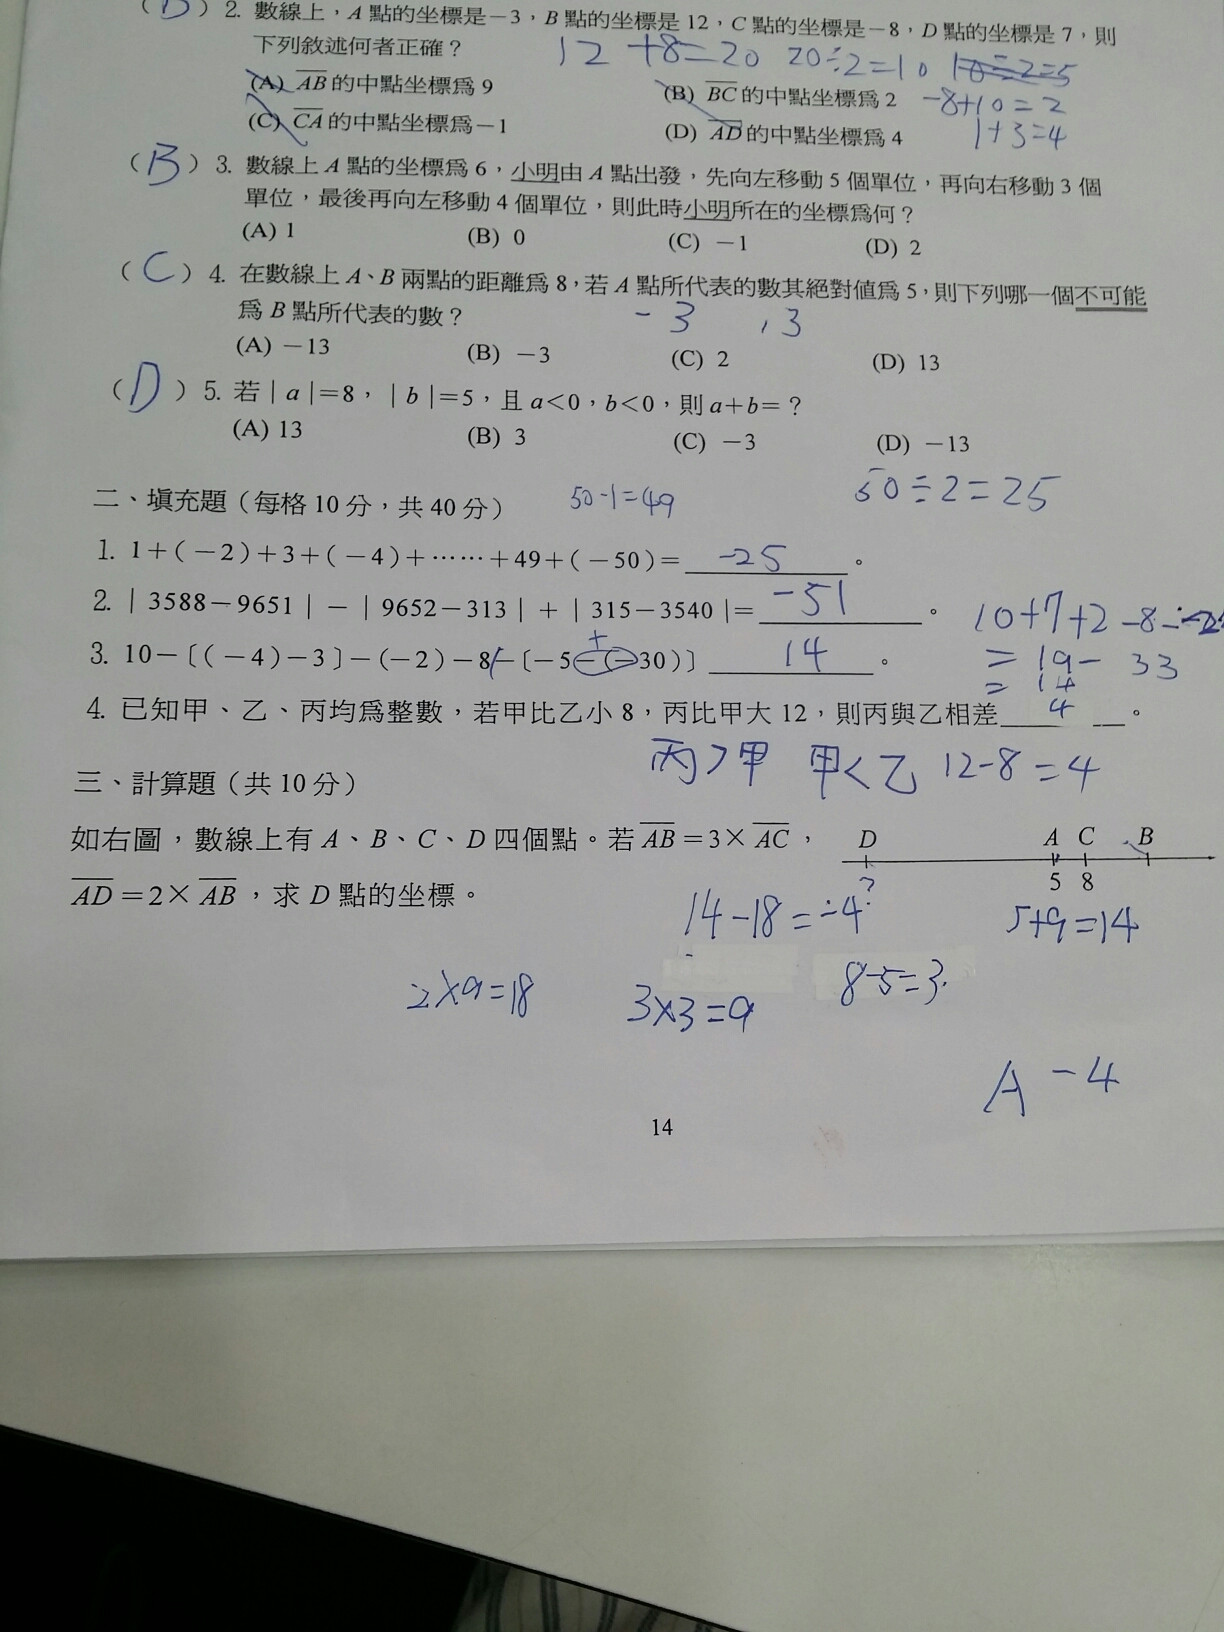 2. 數線上，A 點的坐標是－3，B 點的坐標是 12，C 點的坐標是－8，D 點的坐標是 7，則
下列敘述何者正確？
12 +8=20 20÷2=10
(A) AB 的中點坐標為 9 (B) BC 的中點坐標為 2 -8+10=2
(C) CA 的中點坐標為－1 (D) AD 的中點坐標為 4 1+3=4
（B）3. 數線上 A 點的坐標為 6，小明由 A 點出發，先向左移動 5 個單位，再向右移動 3 個
單位，最後再向左移動 4 個單位，則此時小明所在的坐標為何？
(A) 1 (B) 0 (C) －1 (D) 2
（C）4. 在數線上 A、B 兩點的距離為 8，若 A 點所代表的數其絕對值為 5，則下列哪一個不可能
為 B 點所代表的數？ -3 , 3
(A) －13 (B) －3 (C) 2 (D) 13
（D）5. 若｜a｜=8，｜b｜=5，且 a<0，b<0，則 a+b=？
(A) 13 (B) 3 (C) －3 (D) －13
50÷2=25
二、填充題（每格 10 分，共 40 分） 50-1=49
1. 1+(－2)+3+(－4)+……+49+(－50)= -25 。
2.｜3588－9651｜－｜9652－313｜+｜315－3540｜= -51 。
10+7+2-8-
3. 10－〔(－4)－3〕－(－2)－8－〔－5－(－30)〕 14 。
= 19- 33
= 14
4. 已知甲、乙、丙均為整數，若甲比乙小 8，丙比甲大 12，則丙與乙相差 4 。
丙>甲 甲<乙 12-8=4
三、計算題（共 10 分）
如右圖，數線上有 A、B、C、D 四個點。若 AB=3×AC，
AD=2×AB，求 D 點的坐標。
D A C B
? 5 8
14-18=-4 5+9=14
2×9=18 3×3=9 8-5=3
A -4
14